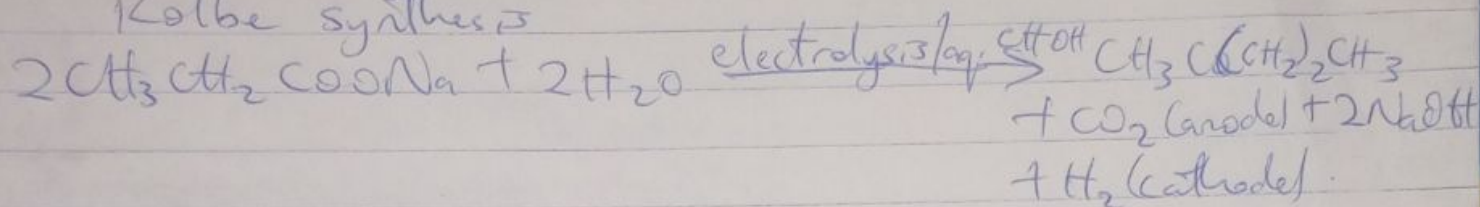 Kolbe synthesis
2CH₃CH₂COONa + 2H₂O electrolysis/aq. CH₃C(CH₂)₂CH₃
+ CO₂ (anode) + 2NaOH
+ H₂ (cathode).